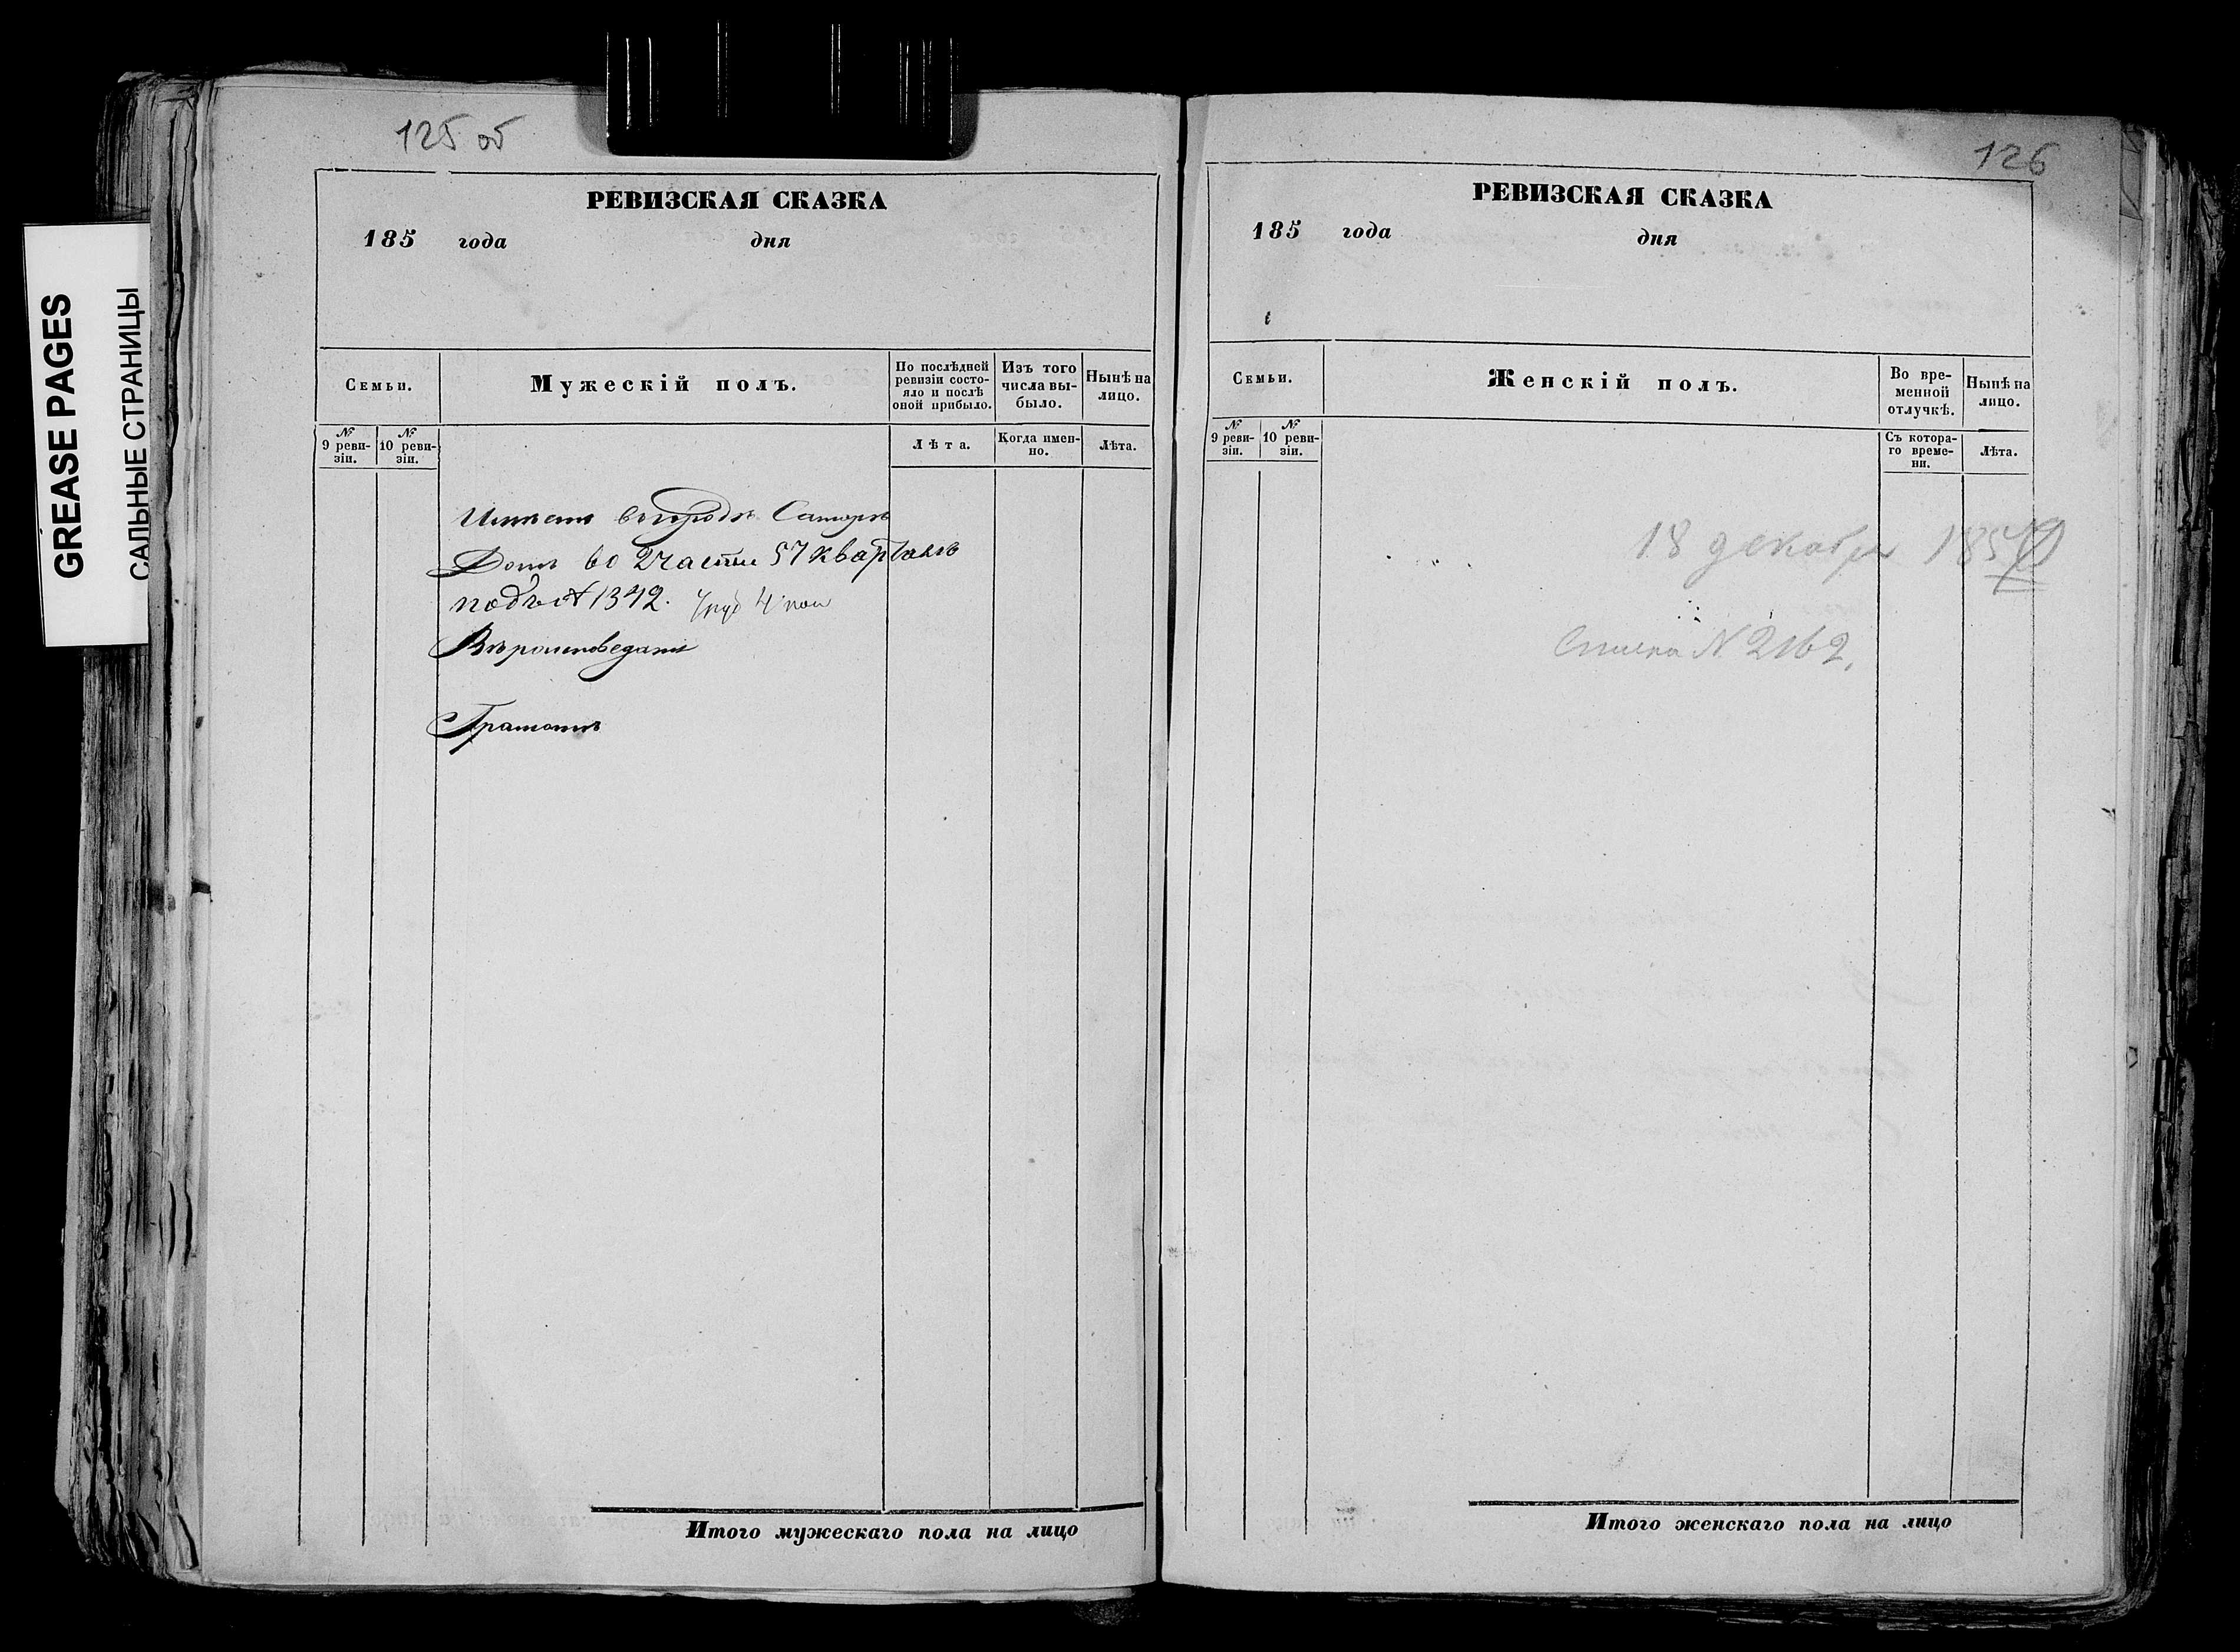 GREASE PAGES
САЛЬНЫЕ СТРАНИЦЫ
125 об
РЕВИЗСКАЯ СКАЗКА
185 года дня
Семьи.
Мужескій полъ.
По послѣдней ревизіи состо-
яло и послѣ
оной прибыло.
Изъ того
числа вы-
было.
Нынѣ на
лицо.
№
9 реви-
зіи.
№
10 реви-
зіи.
Лѣта.
Когда имен-
но.
Лѣта.
Имѣетъ въ городѣ Самарѣ
Домъ во 2 части 57 кварталѣ
подъ № 1342.
Вѣроисповеданія
Грамотѣ
Итого мужескаго пола на лицо
126
РЕВИЗСКАЯ СКАЗКА
185 года дня
Семьи.
Женскій полъ.
Во вре-
менной
отлучкѣ.
Нынѣ на
лицо.
№
9 реви-
зіи.
№
10 реви-
зіи.
Съ котора-
го време-
ни.
Лѣта.
18 декабря 185
N 2162.
Итого женскаго пола на лицо